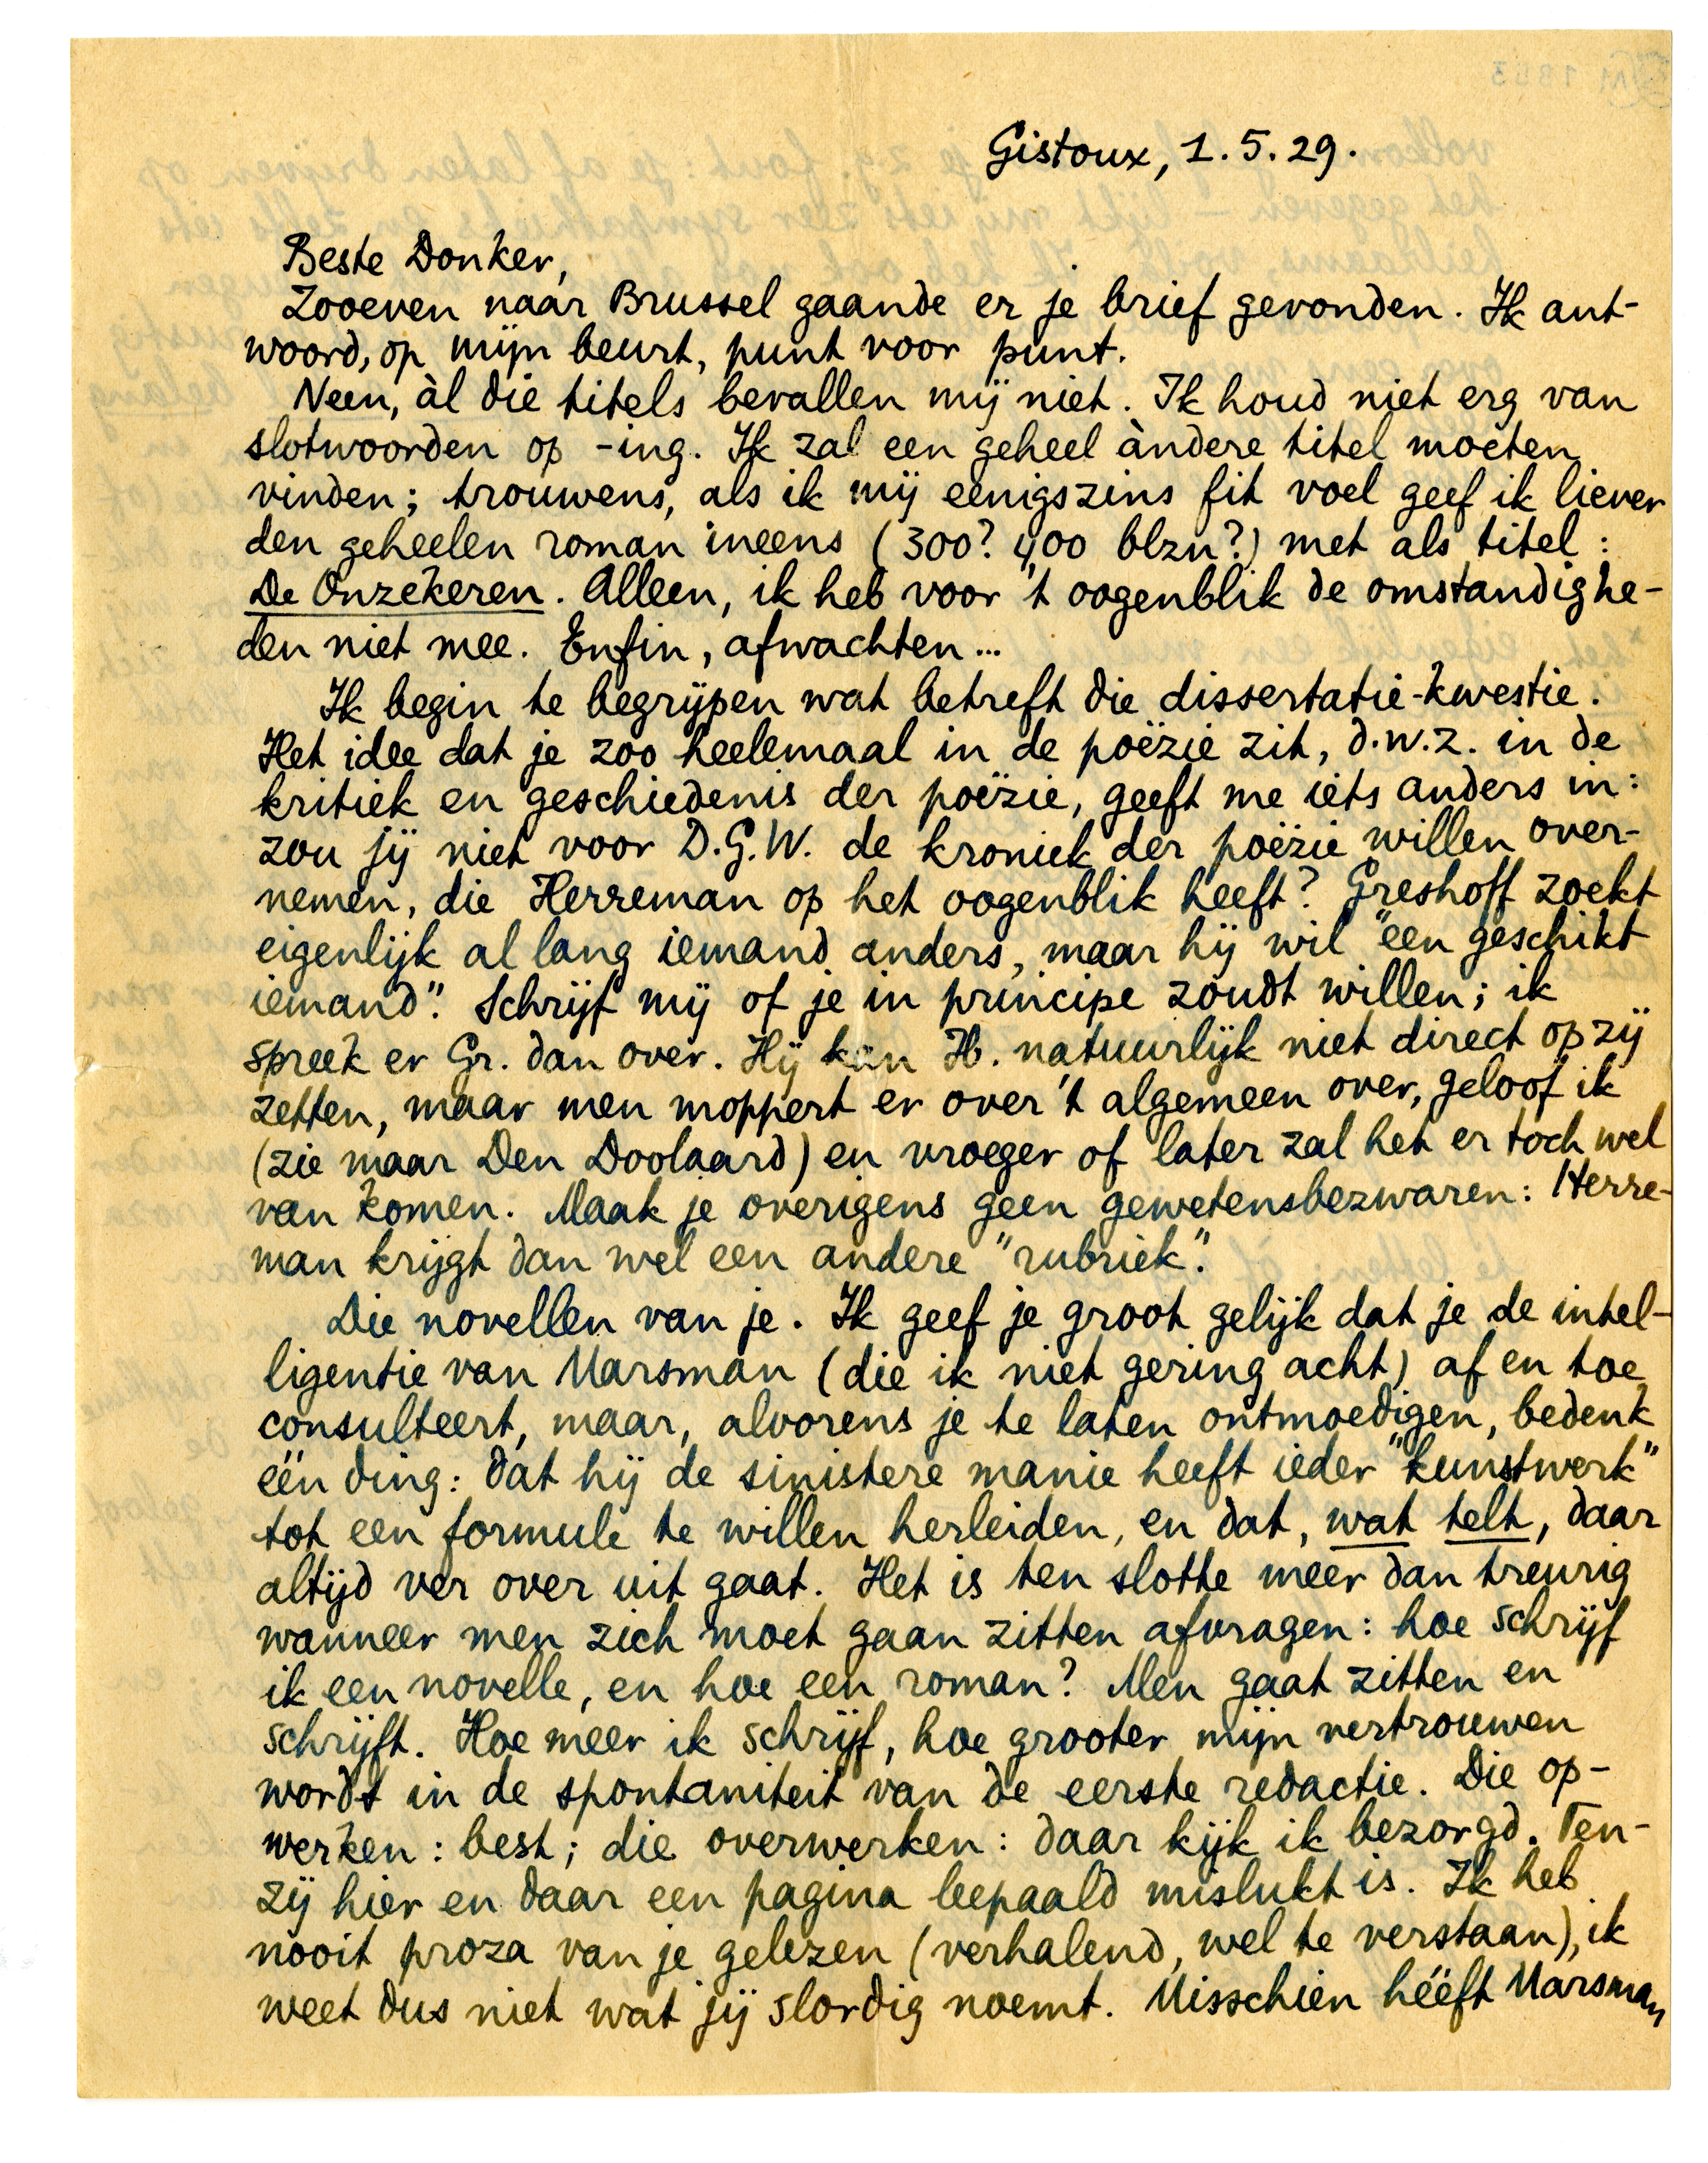 Gistoux, 1.5.29.
Beste Donker,
Zooeven naar Brussel gaande er je brief gevonden. Ik ant-
woord, op mijn beurt, punt voor punt.
Neen, àl die titels bevallen mij niet. Ik houd niet erg van
slotwoorden op -ing. Ik zal een geheel àndere titel moeten
vinden; trouwens, als ik mij eenigszins fit voel geef ik liever
den geheelen roman ineens (300? 400 blzn?) met als titel:
De Onzekeren. Alleen, ik heb voor 't oogenblik de omstandighe-
den niet mee. Enfin, afwachten...
Ik begin te begrijpen wat betreft die dissertatie-kwestie.
Het idee dat je zoo heelemaal in de poëzie zit, d.w.z. in de
kritiek en geschiedenis der poëzie, geeft me iets anders in:
zou jij niet voor D.G.W. de kroniek der poëzie willen over-
nemen, die Herreman op het oogenblik heeft? Greshoff zoekt
eigenlijk al lang iemand anders, maar hij wil "een geschikt
iemand". Schrijf mij of je in principe zoudt willen; ik
spreek er Gr. dan over. Hij kan H. natuurlijk niet direct op zij
zetten, maar men moppert er over 't algemeen over, geloof ik
(zie maar Den Doolaard) en vroeger of later zal het er toch wel
van komen. Maak je overigens geen gewetensbezwaren: Herre-
man krijgt dan wel een andere "rubriek".
Die novellen van je. Ik geef je groot gelijk dat je de intel-
ligentie van Marsman (die ik niet gering acht) af en toe
consulteert, maar, alvorens je te laten ontmoedigen, bedenk
één ding: dat hij de sinistere manie heeft ieder "kunstwerk"
tot een formule te willen herleiden, en dat, wat telt, daar
altijd ver over uit gaat. Het is ten slotte meer dan treurig
wanneer men zich moet gaan zitten afvragen: hoe schrijf
ik een novelle, en hoe een roman? Men gaat zitten en
schrijft. Hoe meer ik schrijf, hoe grooter mijn vertrouwen
wordt in de spontaniteit van de eerste redactie. Die op-
werken: best; die overwerken: daar kijk ik bezorgd. Ten-
zij hier en daar een pagina bepaald mislukt is. Ik heb
nooit proza van je gelezen (verhalend, wel te verstaan), ik
weet dus niet wat jij slordig noemt. Misschien hééft Marsman